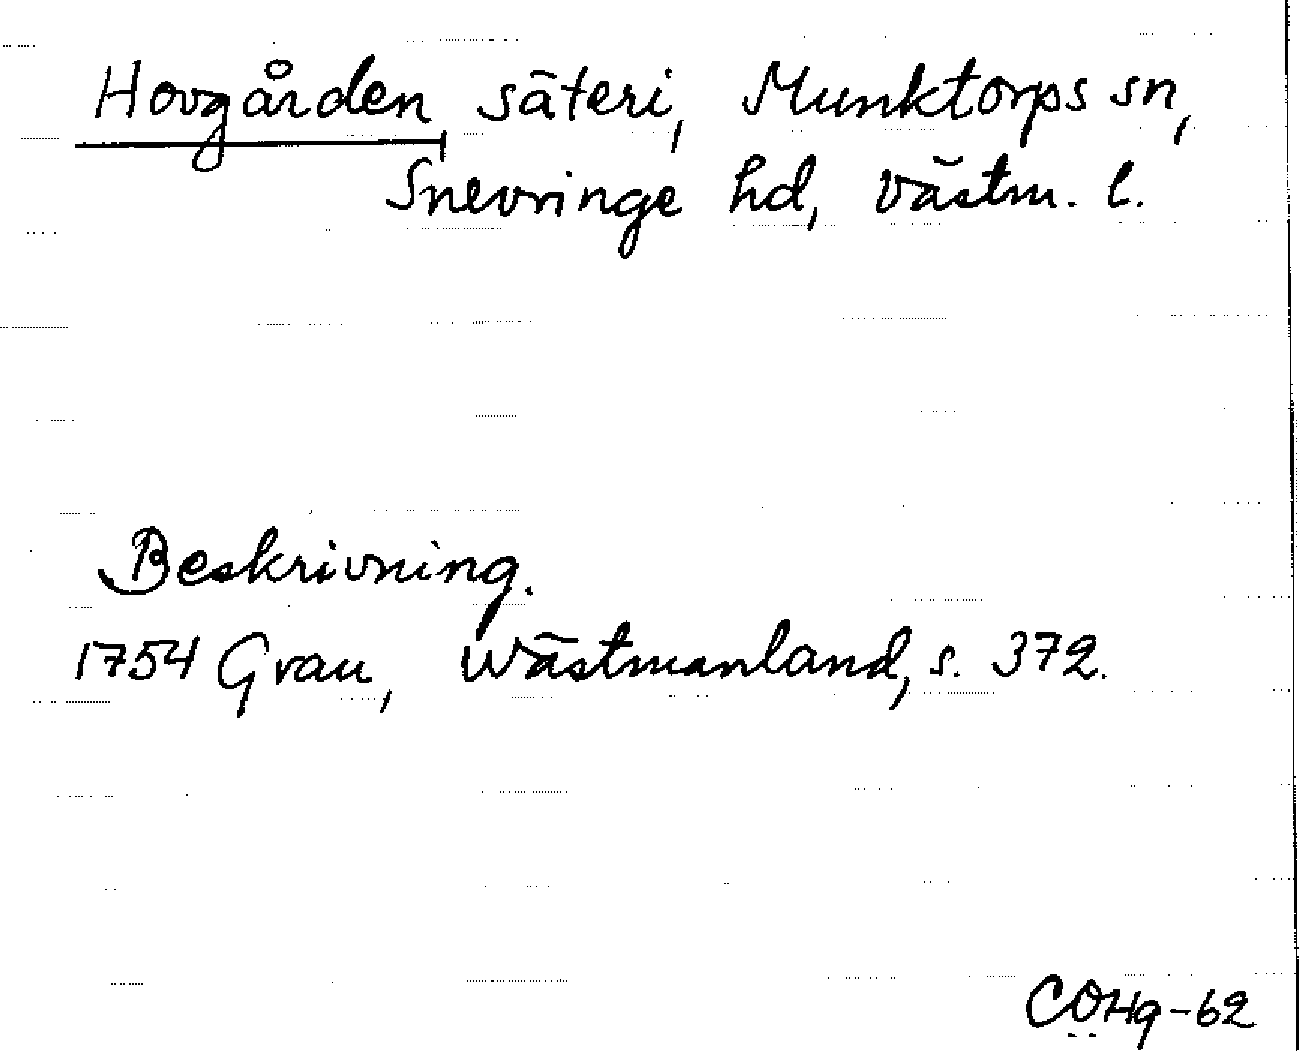 Hovgården, säteri, Munktorps sn,
Snevringe hd, Västm. l.
Beskrivning.
1754 Grau, Wästmanland, s. 372.
COHg-62